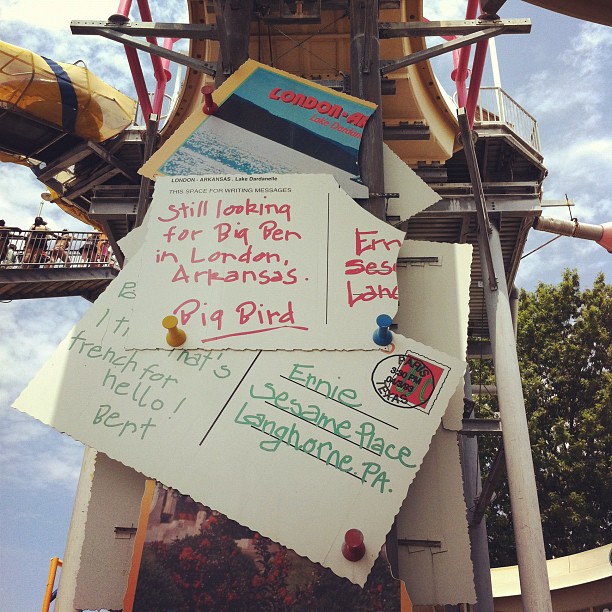 LONDON-A
Lake Dardane
LONDON - ARKANSAS, Lake Dardanelle
THIS SPACE FOR WRITING MESSAGES
Still looking
for Big Ben
in London,
Arkansas.
Big Bird
Ern
Sesa
Lang
I t
That's
french for
hello!
Bert
Ernie
Sesame Place
Langhorne, PA.
PARIS
3:30 PM
TEXAS